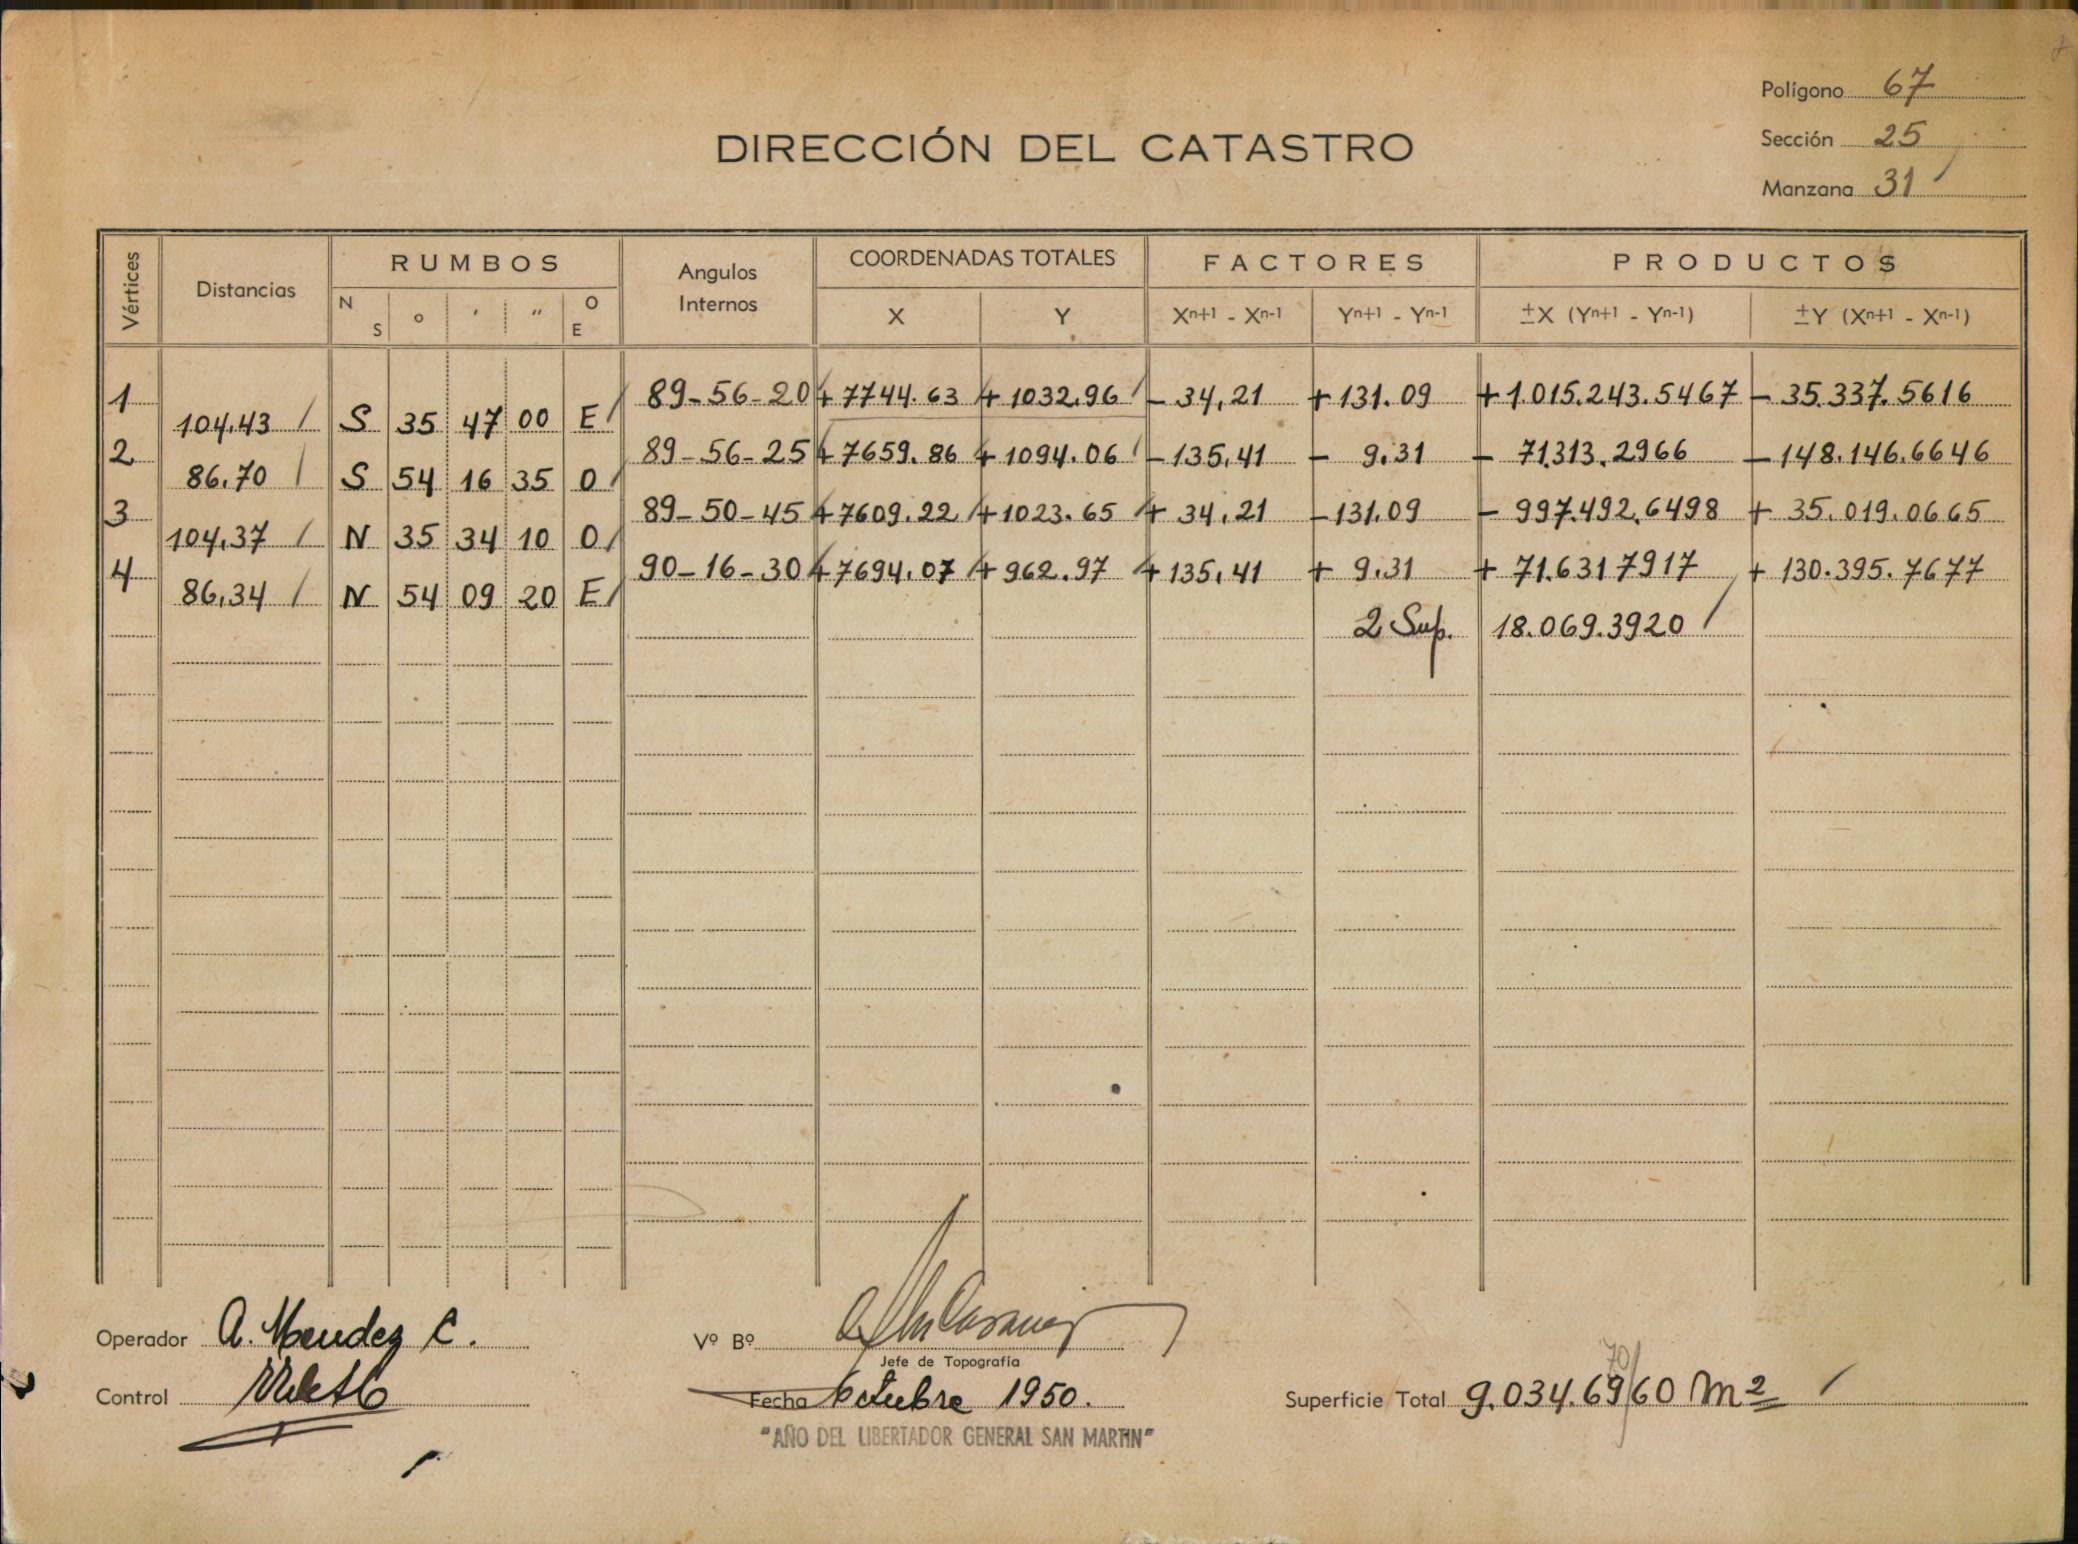 Polígono 67
DIRECCIÓN DEL CATASTRO
Sección 25
Manzana 31
Vértices Distancias RUMBOS N S ° ' " O E Angulos Internos COORDENADAS TOTALES X Y FACTORES Xn+1 - Xn-1 Yn+1 - Yn-1 PRODUCTOS ±X (Yn+1 - Yn-1) ±Y (Xn+1 - Xn-1)
1 89-56-20 +7744.63 +1032.96 -34,21 +131.09 +1.015.243.5467 -35.337.5616
104,43 S 35 47 00 E
2 89-56-25 +7659.86 +1094.06 -135,41 - 9.31 - 71.313.2966 -148.146.6646
86,70 S 54 16 35 O
3 89-50-45 +7609.22 +1023.65 + 34,21 -131.09 - 997.492.6498 + 35.019.0665
104,37 N 35 34 10 O
4 90-16-30 +7694.07 +962.97 +135,41 + 9.31 + 71.631 7917 + 130.395.7677
86,34 N 54 09 20 E
2 Sup. 18.069.3920
Operador A. Mendez C.
Vº Bº
Jefe de Topografía
Control
Fecha Octubre 1950.
Superficie Total 9.034.6960 m2
70
"AÑO DEL LIBERTADOR GENERAL SAN MARTIN"